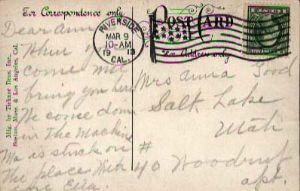 For Correspondence only
POST CARD
For Address only
RIVERSIDE
MAR 9
10-AM
1913
CAL.
Dear
When
come
bring you here
We come down
in the Machine
Ma is stuck on
the place With
love Ella.
Mrs Anna Good
Salt Lake
Utah
# 40 Woodruff
apt.
Mfg. by Tichnor Bros. Inc.,
Boston, Mass. & Los Angeles, Cal.